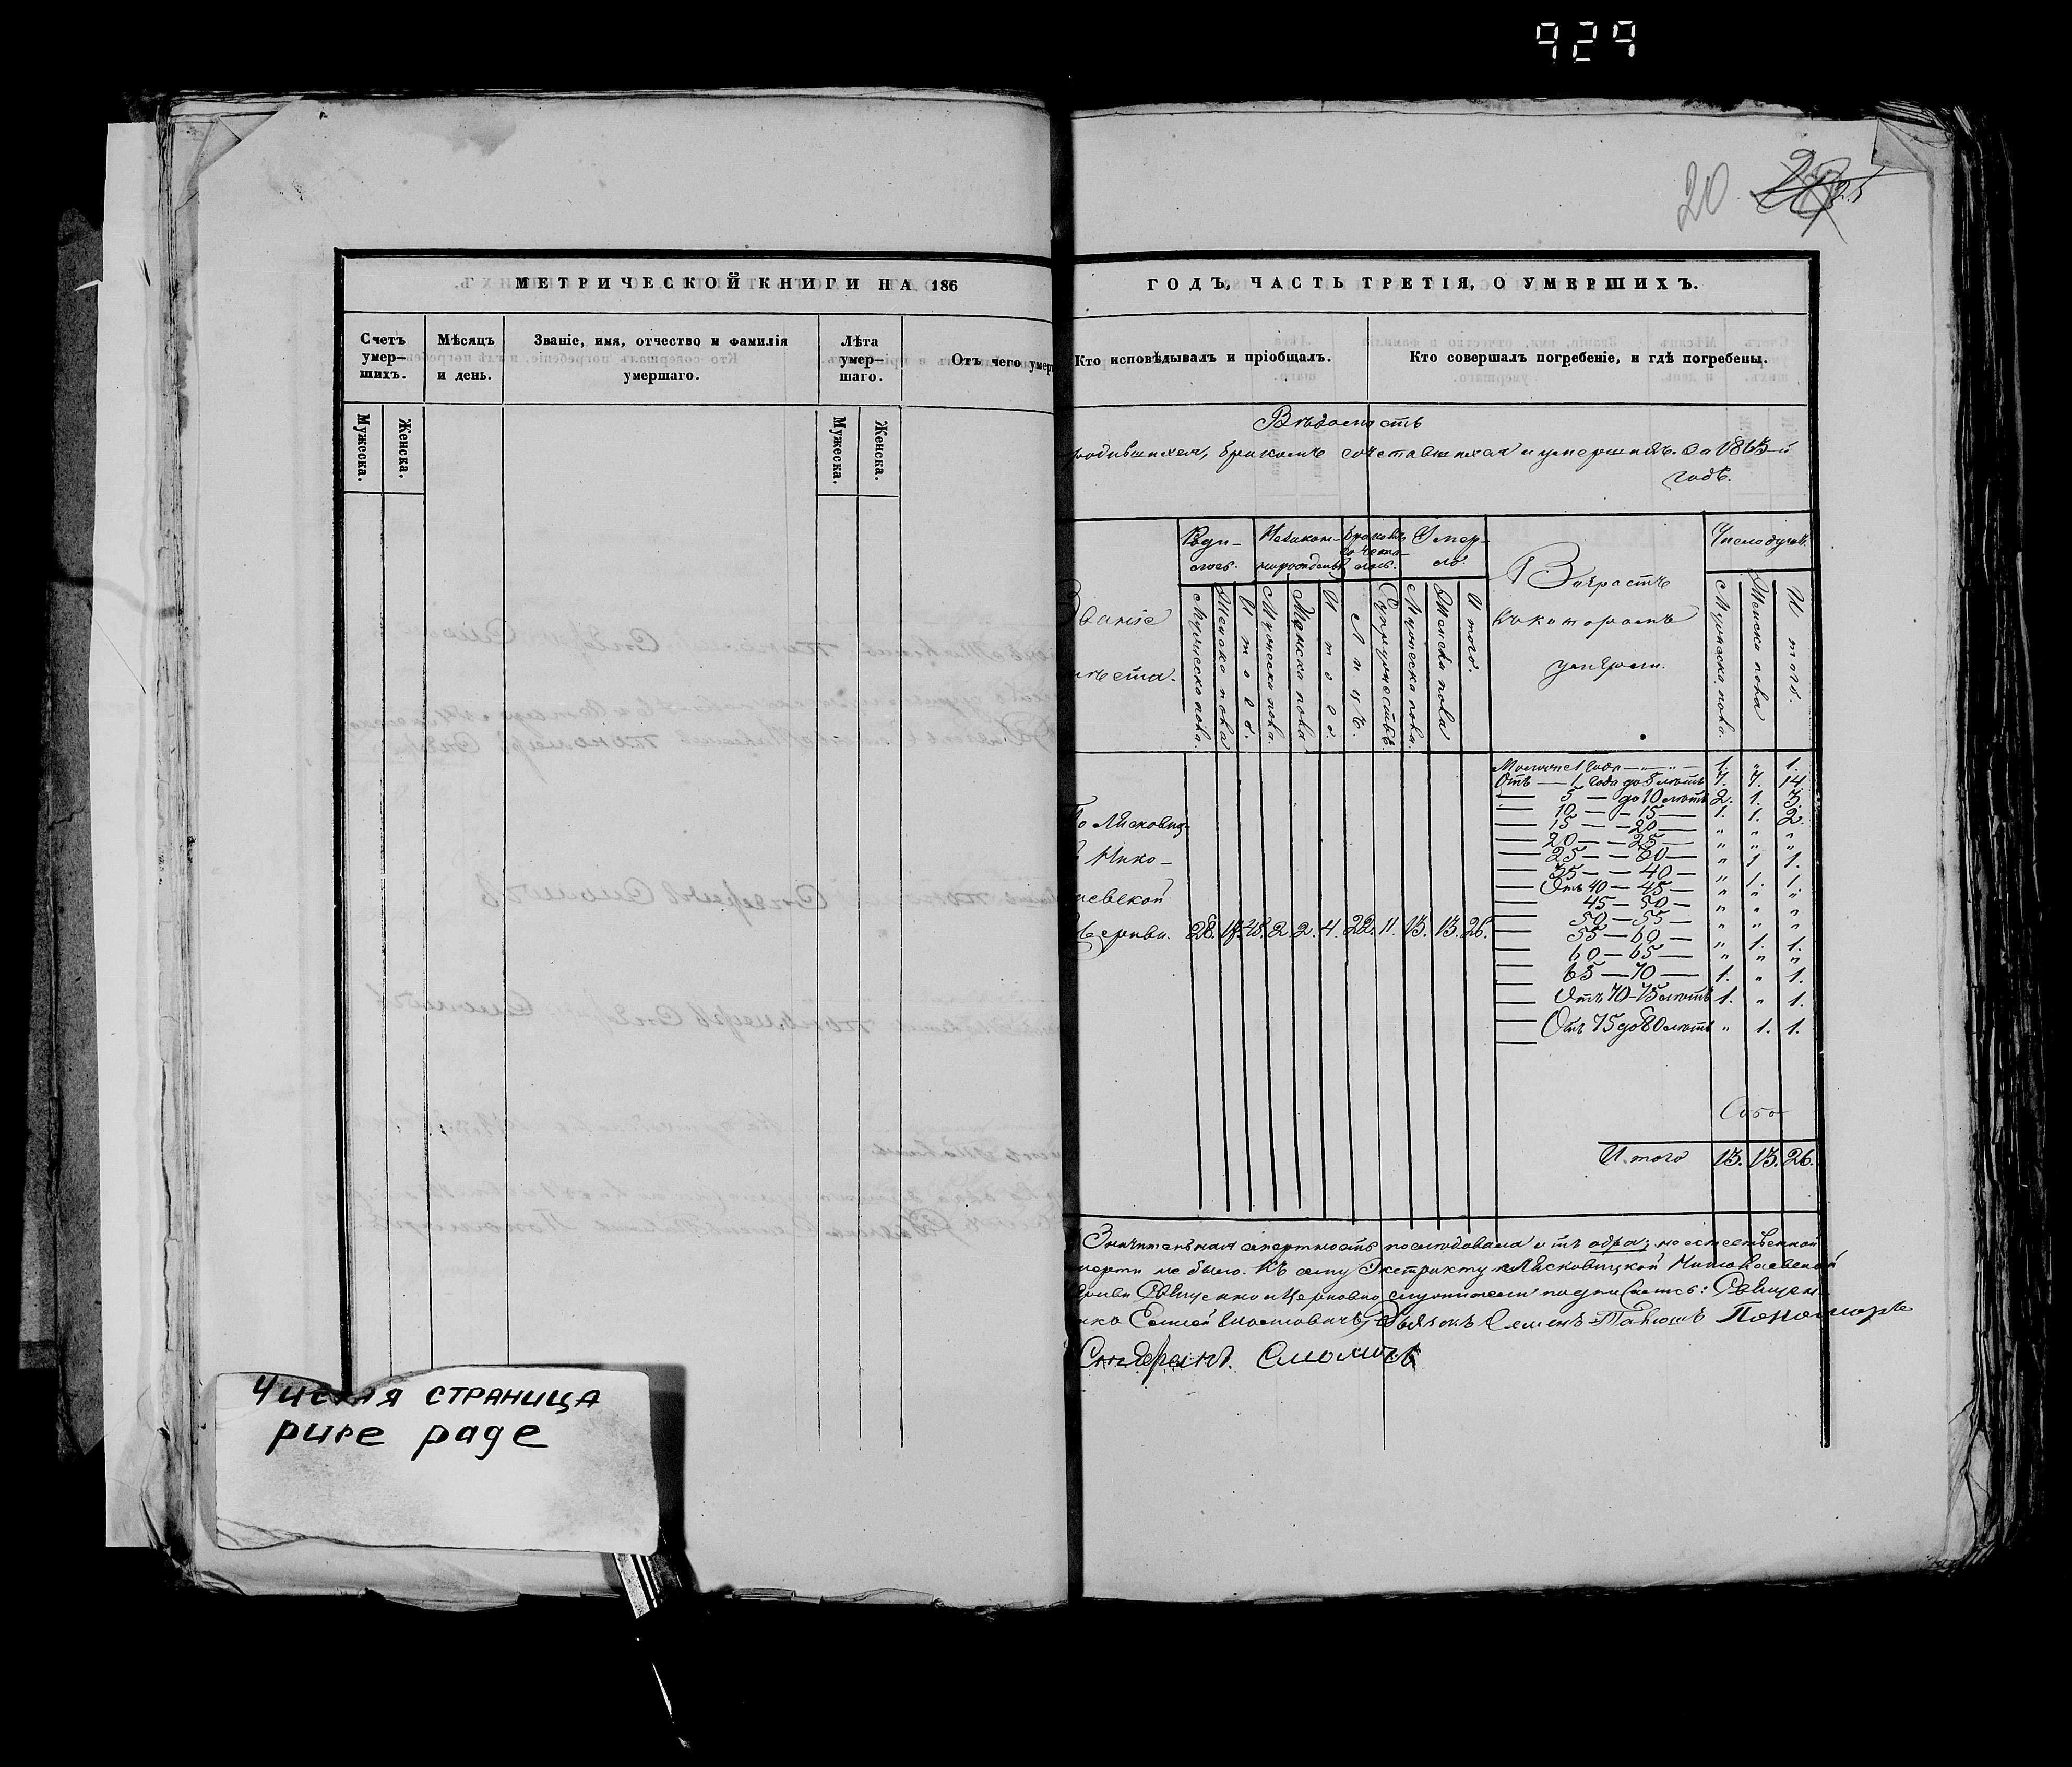 929
20
МЕТРИЧЕСКОЙ КНИГИ НА 186
Счетъ умер—шихъ.
Мѣсяцъ и день.
Званіе, имя, отчество и фамилія умершаго.
Лѣта умер—шаго.
Отъ чего умер
Мужеска.
Женска.
Мужеска.
Женска.
Чистая страница
pure page
ГОДЪ, ЧАСТЬ ТРЕТІЯ, О УМЕРШИХЪ.
Кто исповѣдывалъ и пріобщалъ.
Кто совершалъ погребеніе, и гдѣ погребены.
Вѣдомость
родившихся, бракомъ сочетавшихся и умершихъ за 1863-й
годъ.
Званіе
мѣста.
Роди-лось.
Незакон-норожденых
Бракомъ сочета-лось.
Умер-ло.
Возрастъ
въ которомъ
умерли.
Число душъ.
Мужеска пола.
Женска пола
Итого.
Мужеска пола.
Женска пола
Итого.
Лицъ.
Супружествъ.
Мужеска пола.
Женска пола
Итого.
Мужеска пола.
Женска пола
Итого.
По Лясковиц-
Нико-
аевской
Церкви. 28. 17. 45. 2. 2. 4. 22. 11. 13. 13. 26.
Моложе 1 года — „ — 1. „ 1.
Отъ — 1 года до 5 лѣтъ 7. 7. 14
— 5 — до 10 лѣтъ 2. 1. 3.
— 10 — 15 — 1. 1. 2.
— 15 — 20 — „ „ „
— 20 — 25 — „ „ „
— 25 — 30 — „ 1 1.
— 35 — 40 — „ 1. 1.
— Отъ 40 — 45 — „ „ „
— 45 — 50 — „ „ „
— 50 — 55 — „ „ „
— 55 — 60 — „ 1. 1.
— 60 — 65 — „ „ „
— 65 — 70 — 1. „ 1.
— Отъ 70 — 75 лѣтъ 1. „ 1.
— Отъ 75 до 80 лѣтъ „ 1. 1.
Итого 13. 13. 26.
Значительная смертность послѣдовала отъ одра; неестественной
смерти не было. Къ сему Экстракту Лясковицкой Николаевской
Церкви Священно и Церковно служители подписались: Священ-
Дьячокъ Семенъ Пономарь